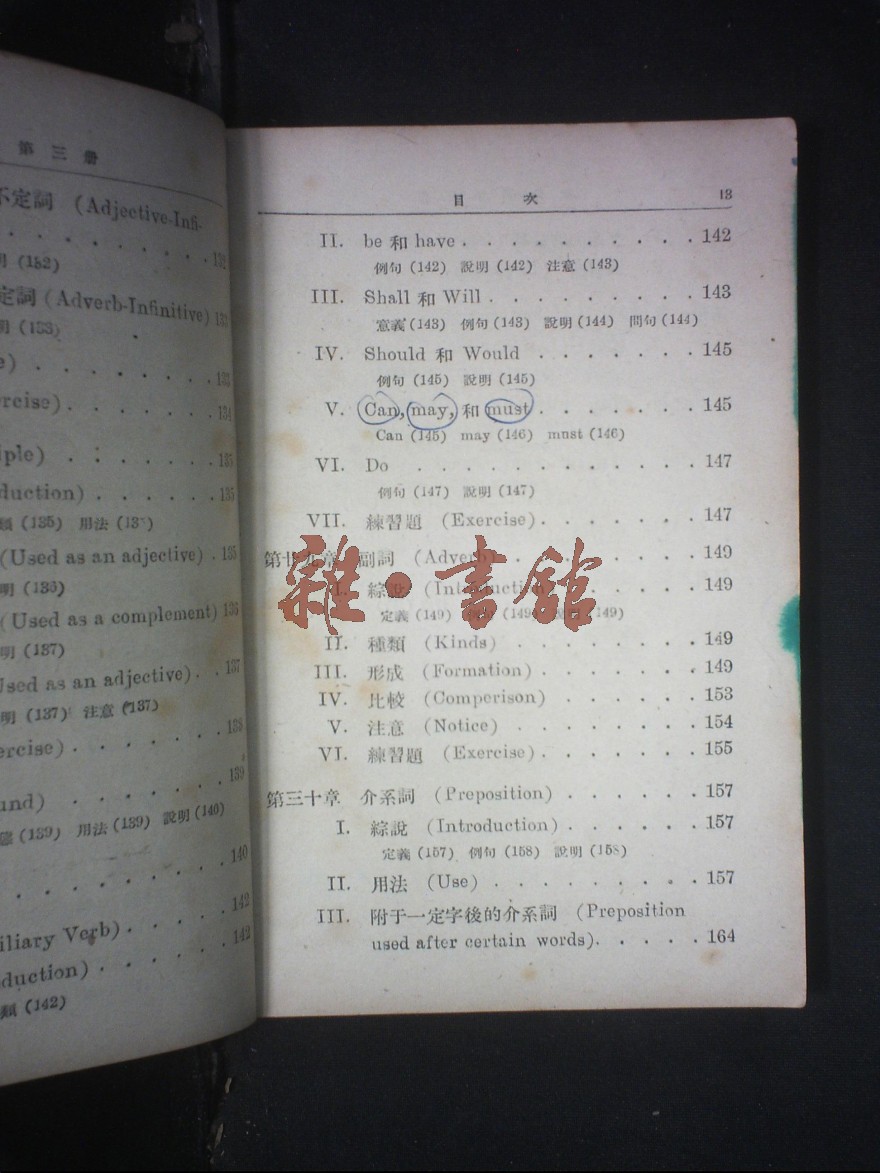 第三册
不定詞 (Adjective-Infi-
132
明 (132)
定詞 (Adverb-Infinitive) 133
明 (133)
e) 133
rcise) 134
iple) 135
duction) 135
類 (135) 用法
(Used as an adjective) 135
明 (136)
(Used as a complement) 136
明 (137)
Used as an adjective) 137
明 (137) 注意 (137)
ercise) 138
und) 139
(139) 用法 (139) 說明 (140)
140
iliary Verb) 142
duction) 142
類 (142)
目 次 13
II. be 和 have 142
例句 (142) 說明 (142) 注意 (143)
III. Shall 和 Will 143
意義 (143) 例句 (143) 說明 (144) 問句 (144)
IV. Should 和 Would 145
例句 (145) 說明 (145)
V. Can, may, 和 must 145
Can (145) may (146) must (146)
VI. Do 147
例句 (147) 說明 (147)
VII. 練習題 (Exercise) 147
第廿九章 副詞 (Adverb) 149
I. 綜說 (Introduction) 149
定義 (149) (149) (149)
雜·書舘
II. 種類 (Kinds) 149
III. 形成 (Formation) 149
IV. 比較 (Comperison) 153
V. 注意 (Notice) 154
VI. 練習題 (Exercise) 155
第三十章 介系詞 (Preposition) 157
I. 綜說 (Introduction) 157
定義 (157) 例句 (158) 說明 (158)
II. 用法 (Use) 157
III. 附于一定字後的介系詞 (Preposition
used after certain words) 164